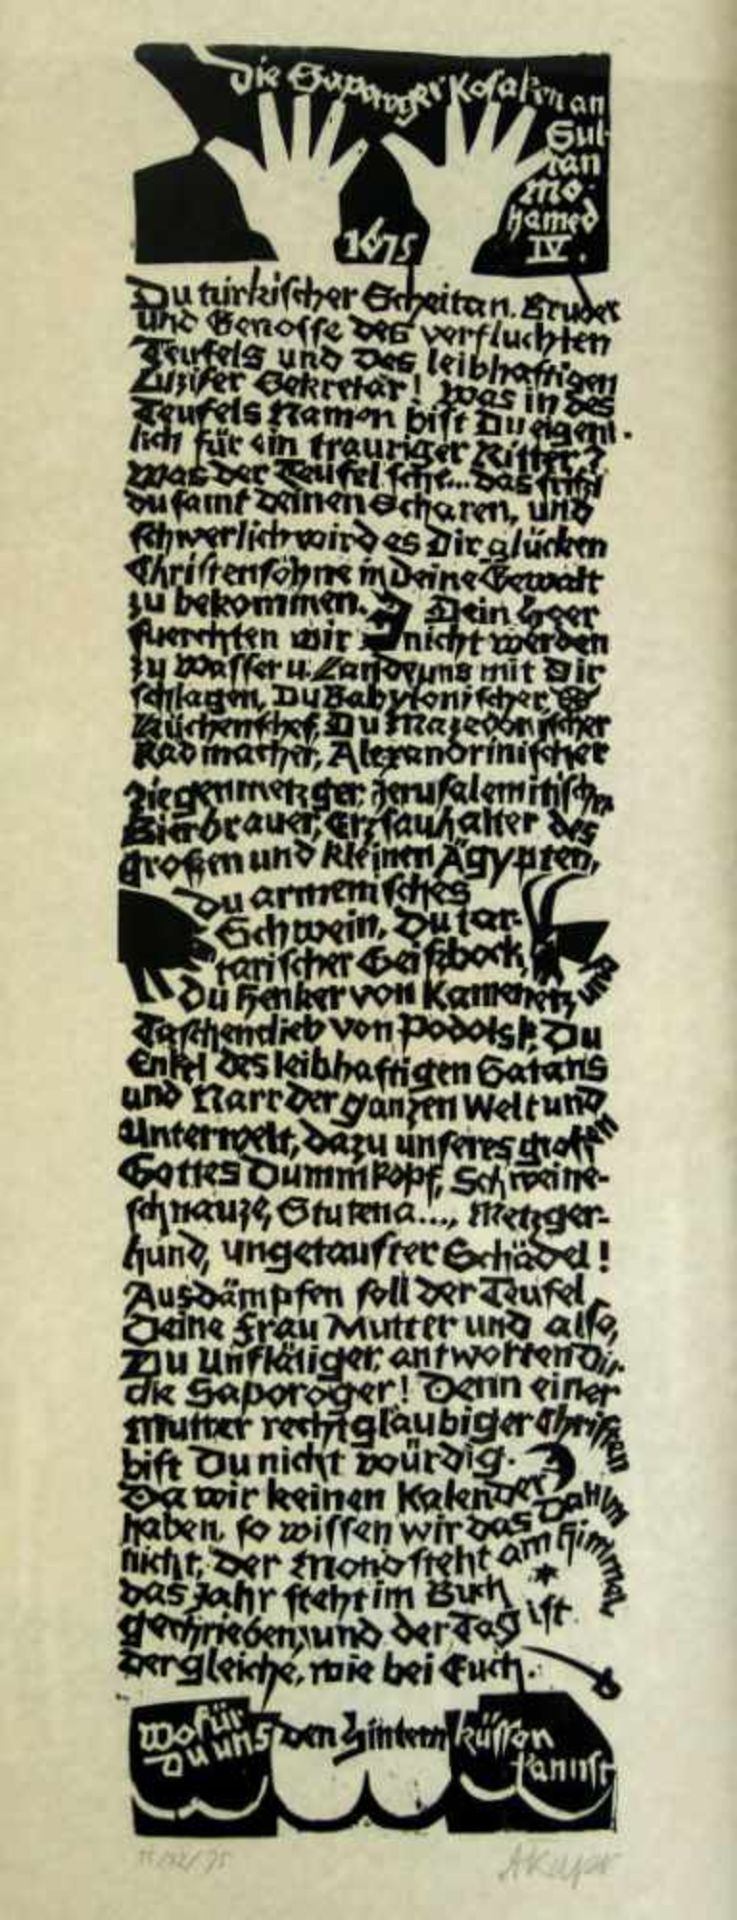 Die Saporoger Kosaken an
Sul-
tan
Mo-
hamed
IV.
1675
Du türkischer Scheitan. Bruder
und Genosse des verfluchten
Teufels und des leibhaftigen
Luzifer Sekretär! Was in des
Teufels Namen bist Du eigent-
lich für ein trauriger Ritter?
Was der Teufel sch... das frißt
du samt deinen Scharen, und
schwerlich wird es Dir glücken
Christensöhne in Deine Gewalt
zu bekommen. Dein Heer
fuerchten wir nicht werden
zu Wasser u. Lande uns mit Dir
schlagen, Du Babylonischer
Küchenchef, Du Mazedonischer
Radmacher, Alexandrinischer
Ziegenmetzger, Jerusalemitischer
Bierbrauer, Erzsauhalter des
großen und kleinen Ägypten,
du armenisches
Schwein, Du tar-
tarischer Geißbock,
Du Henker von Kamenetz, und
Taschendieb von Podolsk, Du
Enkel des leibhaftigen Satans
und Narr der ganzen Welt und
Unterwelt, dazu unseres großen
Gottes Dummkopf, Schweine-
schnauze, Stutena..., Metzger-
hund, ungetaufter Schädel!
Ausdämpfen soll der Teufel
Deine Frau Mutter und also,
Du Unflätiger, antworten Dir
die Saporoger! Denn einer
Mutter rechtgläubiger Christen
bist Du nicht würdig.
Da wir keinen Kalender
haben, so wissen wir das Datum
nicht, der Mond steht am Himmel
das Jahr steht im Buch
geschrieben, und der Tag ist
der gleiche, wie bei Euch.
Wofür
Du uns den Hintern küssen
kannst